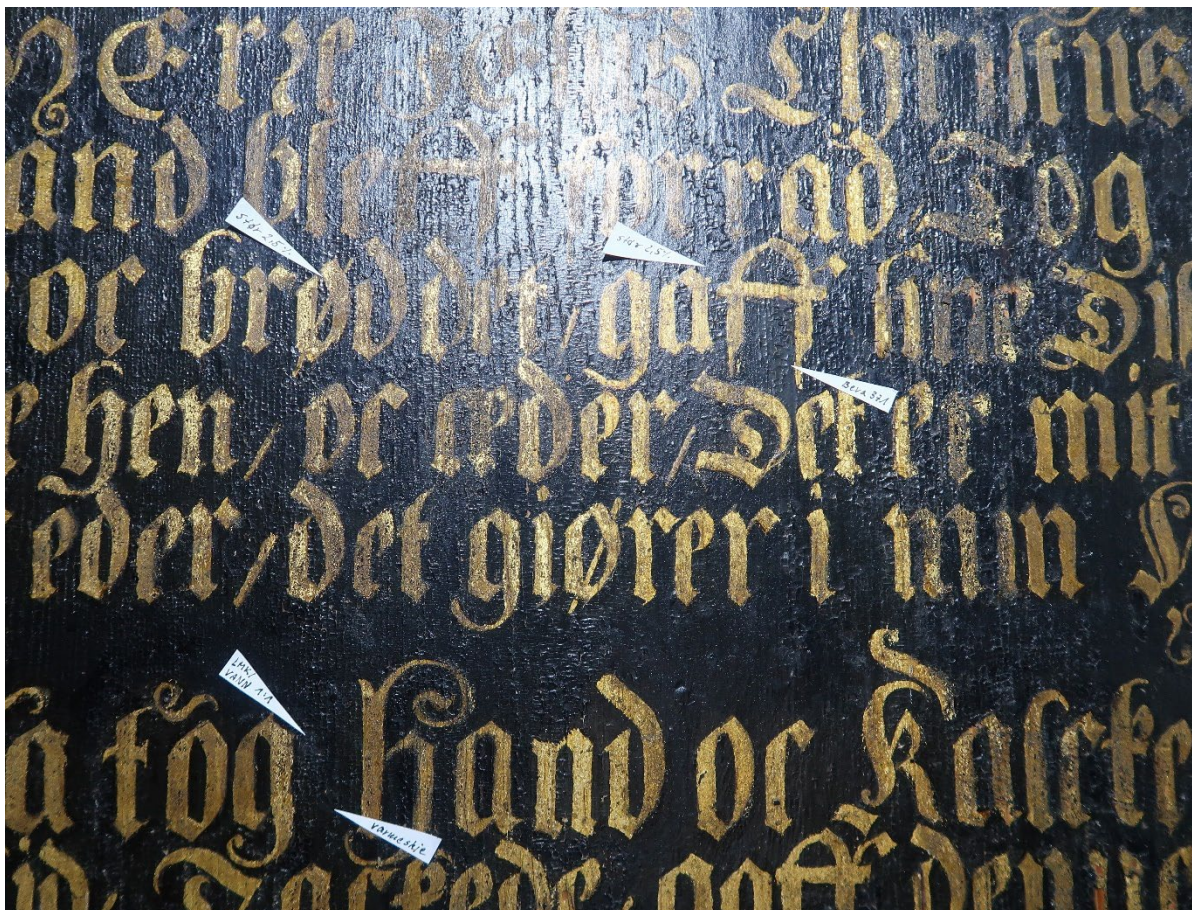 HErre Jesus Christus
hand bleff forråd, Tog
oc brødet, gaff sine Disc
hen, oc æder, Det er mit
eder, det giører i min
så tog hand oc Kalcke
Tackede, gaff dennom
Stør 2,5%
Stør 2,5%
Beva 371
LMK/
VANN 1:1
Varmeskje